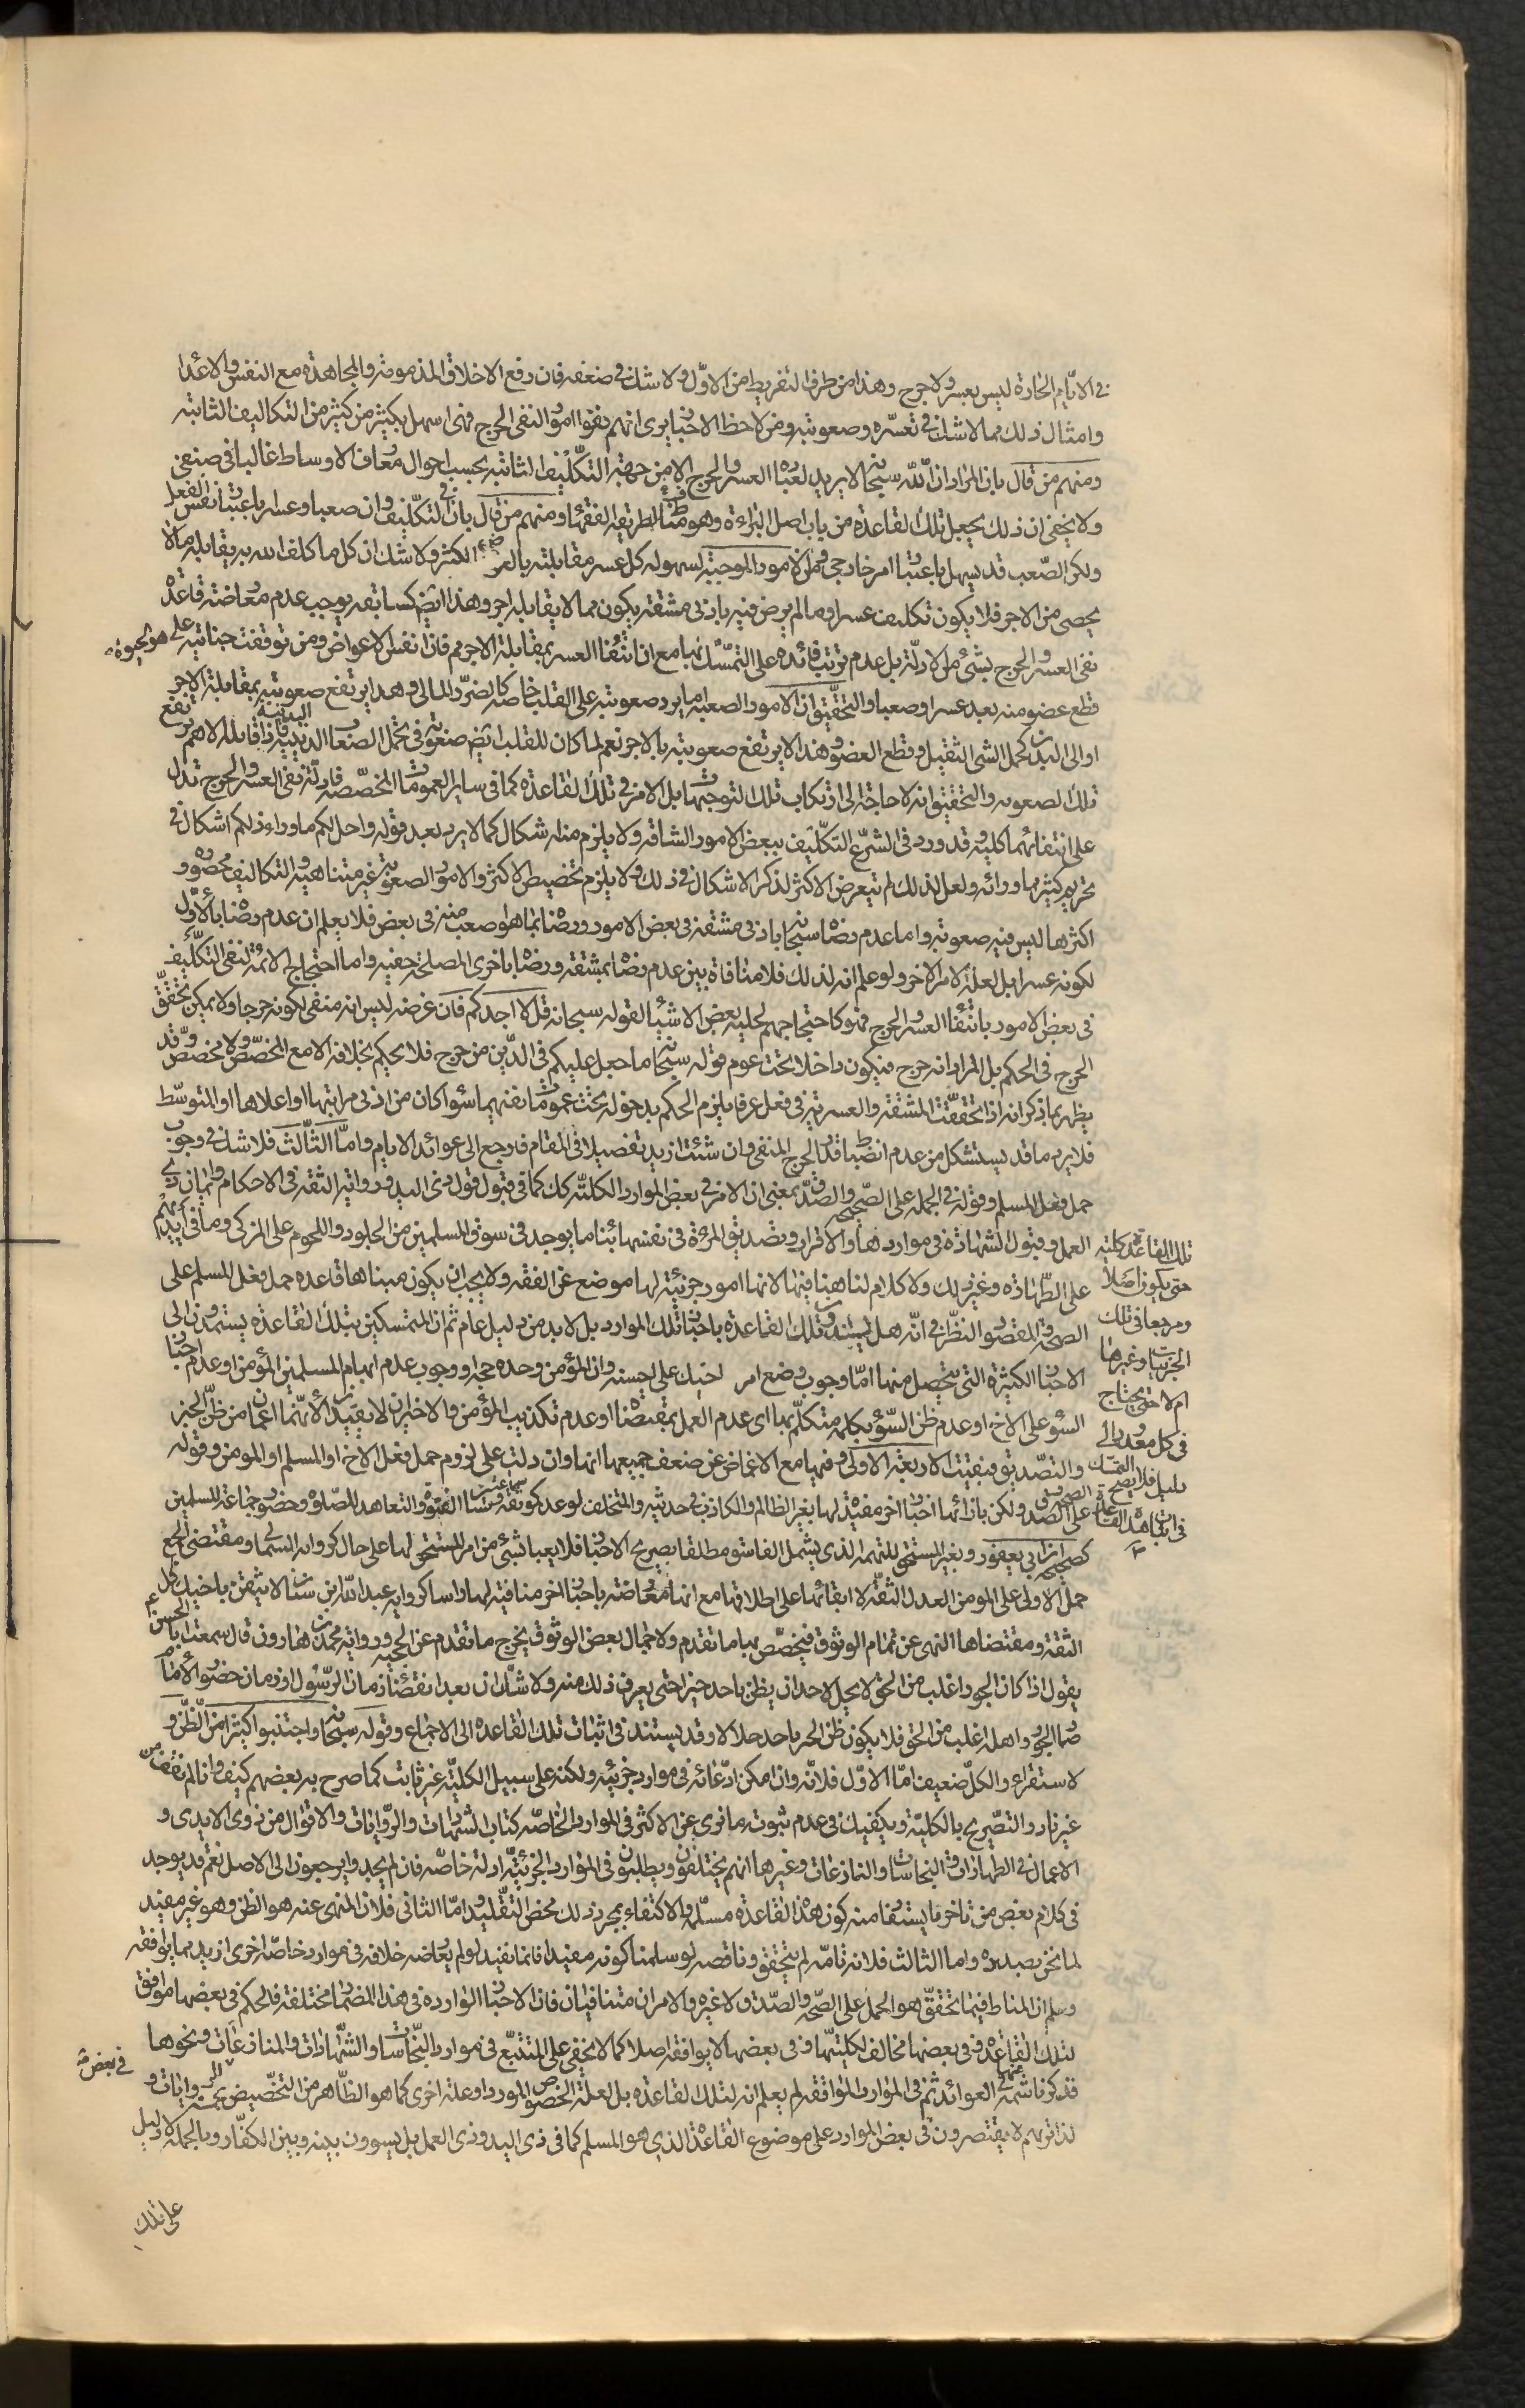 في الايّام الحارة ليس بعسر ولا حرج وهذا من طرف التفريط من الاوّل ولا شك في ضعفه فان رفع الاخلاق المذمومة والمجاهدة مع النفس والاعدا
وامثال ذلك مما لا شك في تعسّره وصعوبته ومن لاحظ الاخبار يرى انهم نفوا امورا لنفى الحرج فهى اسهل بكثير من كثير من التكاليف الثابتة
ومنهم من قال بان المراد ان اللّه سبحانه لا يريد لعباده العسر والحرج الا من جهة التكليف الثابتة بحسب احوال متعارف الاوساط غالبا في
ولا يخفى ان ذلك يجعل تلك القاعدة من باب اصل البراءة وهو مناف لطريقة الفقهاء ومنهم من قال بان في التكليف وان صعبا وعسرا باعتبار نفس الفعل
ولكن الصّعب قد يسهل باعتبار امر خارجى ومن الامور الموجبة لسهولة كل عسر مقابلته بالعوض الكثير ولا شك ان كل ما كلف الله به يقابله ما لا
يحصى من الاجر فلا يكون تكليف عسرا وما لم يرض فيه بادنى مشقة يكون مما لا يقابله اجر وهذا ايضا كسابقه يوجب عدم معارضة قاعدة
نفى العسر والحرج بشئ من الادلّة بل عدم ترتب فائدة على التمسّك بها مع ان انتفاء العسر بمقابلة الاجر مم فان نفس الاعواض ومن توقفت حياته على
قطع عضو منه يعد عسرا وصعبا والتحقيق ان الامور الصعبة اما يرد صعوبته على القلب خاصة كالضرر المالى وهذا يرتفع صعوبته بمقابلة الاجر
او الى البدن كحمل الشئ الثقيل وقطع العضو وهذا لا يرتفع صعوبته بالاجر نعم لما كان للقلب ايضا صعوبة في تحمل الصعاب البدنية فاذا قابله الاهم يرتفع
تلك الصعوبة والتحقيق انه لا حاجة الى ارتكاب تلك التوجيهات بل الامر في تلك القاعدة كما في ساير العمومات المخصّصة فادلّة نفى العسر والحرج تدل
على انتفائهما كلية وقد ورد في الشرع التكليف ببعض الامور الشاقة ولا يلزم منه اشكال كما لا يرد بعد قوله واحل لكم ما وراء ذلكم اشكال في
تحريم كثير مما ورائه ولعل لذلك لم يتعرض الاكثر لذكر الاشكال في ذلك ولا يلزم تخصيص الاكثر والامور الصعوبة غير متناهية والتكاليف محصورة و
اكثرها ليس فيه صعوبة واما عدم رضاه سبحانه بادنى مشقة في بعض الامور ورضاه بما هو اصعب منه في بعض فلا يعلم ان عدم رضاه بالاوّل
لكونه عسرا بل لعلة لامر الاخر ولو علم انه لذلك فلا منافاة بين عدم رضاه بمشقة ورضاه باخرى المصلحة خفية واما احتجاج الائمة لنفى التكليف
في بعض الامور بانتفاء العسر والحرج فهو كاحتجاجهم لحلية بعض الاشياء لقوله سبحانه قل لا اجد كم فان غرضه ليس انه منفى لكونه حرجا ولا يمكن تحقق
الحرج في الحكم بل المراد انه حرج فيكون داخلا تحت عموم قوله سبحانه ما جعل عليكم في الدّين من حرج فلا يحكم بخلافه الا مع المخصّص ولا مخصص وقد
يظهر بما ذكر انه اذا تحققت المشقة والعسرية في فعل عرفا يلزم الحكم بدخوله تحت عمومات نفيهما سواء كان من ادنى مراتبها او اعلاها او المتوسّط
فلا يرد ما قد يستشكل من عدم انضباط قدر الحرج المنفى وان شئت ازيد تفصيلا في المقام فارجع الى عوائد الايام وامّا الثّالث فلا شك في وجوب
حمل فعل المسلم وقوله في الجملة على الصّحة والصدق بمعنى ان الامر في بعض الموارد الكلية كك كما في قبول قول ذى اليد ورواية الثقة في الاحكام وائتمان ذى
العمل وقبول الشهادة في مواردها والاقرار وتصديق المرأة في نفسها بناء ما يوجد في سوق المسلمين من الجلود واللحوم على المزكى وما في ايديهم
على الطهارة وغير ذلك ولا كلام لنا هنا فيها لانها امور جزئية لها موضع عن الفقه ولا يجب ان يكون مبناها قاعدة حمل فعل المسلم على
الصحة والمقصود النظر في انّه هل يستند تلك القاعدة باخبار تلك الموارد بل لا بد من دليل عام ثم ان المتمسكين بتلك القاعدة يستمدون الى
الاخبار الكثيرة التى يتحصل منها امّا وجوب وضع امر اخيك على احسنه وان المؤمن وحده حجة او وجوب عدم اتهام المسلمين المؤمن او عدم اخبار
السوء على الاخ او عدم ظن السّوء بكلمة متكلّم بها اى عدم العمل بمقتضاه او عدم تكذيب المؤمن والاخيران لا يفيدان لانّهما اعمان من ظنّ الخير
والتصديق فبقيت الاربعة الاولى وفيها مع الاغماض عن ضعف جميعها انها وان دلت على لزوم حمل فعل الاخ او المسلم او المومن وقوله
على الصدق ولكن بازائها اخبارا اخر مفيدة لها بغير الظالم والكاذب في حديثه والمتخلف لوعده كموثقة سماعة وبساتر القبوة والتعاهد للصّلوة وحضور جماعة المسلمين
كصحيحة ابن ابى يعفور وبغير المستحق للتهمة الذى يشمل الفاسق مطلقا بصريح الاخبار فلا يعبا بشئ من امر المستحق لها على حال كرواية السكما ومقتضى الجمع
حمل الاولى على المومن العدل الثقة لا ابقائها على اطلاقها مع انها معارضة باخبار اخر منافية لها راسا كرواية عبد اللّه بن سنان لا تثقن باخيك كل
الثقة ومقتضاها النهى عن تمام الوثوق فيخصّص بها ما تقدم ولاجمال بعض الوثوق يخرج ما تقدم عن الحجية ورواية محمد بن هارون قال سمعت ابا الحسن ع
يقول اذا كان الجور اغلب من الحق لا يحل لاحد ان يظن باحد خيرا حتى يعرف ذلك منه ولا شك ان بعد انقضاء زمان الرّسول او زمان حضور الامام
صار الجور واهله اغلب من الحق فلا يكون ظن الخير باحد حلالا وقد يستند في اثبات تلك القاعدة الى الاجماع وقوله سبحانه واجتنبوا كثيرا من الظّن و
لاستقراء والكلّ ضعيف امّا الاوّل فلانّه وان امكن ادّعائه في موارد جزئية ولكنه على سبيل الكليّة غير ثابت كما صرح به بعضهم كيف وانا لم نقف من
غير نادر التصّريح بالكليّة ويكفيك في عدم ثبوته ما نرى عن الاكثر في الموارد الخاصّة كتاب الشهادات والرّوايات والاقوال من ذوى الايدى و
الاعمال في الطهارات والنجاسات والتنازعات وغيرها انهم يختلفون ويطلبون في الموارد الجزئيّة ادلة خاصّة فان لم يجدوا يرجعون الى الاصل نعم قد يوجد
في كلام بعض من تاخر ما يستفاد منه كون هذه القاعدة مسلّمة والاكتفاء بمجرد ذلك محض التّقليد وامّا الثانى فلان المنهى عنه هو الظن وهو غير مفيد
لما نحن بصدده واما الثالث فلانه تامّه لم يتحقق وناقصه لو سلمنا كونه مفيدا فانما نفيد لو لم يعارضه خلافه في موارد خاصّة اخرى ازيد مما يوافقه
وسلم ان المناط فيما تحقق هو الحمل على الصّحة والصّدق لا غيره والامران متنافيان فان الاخبار الواردة في هذا المضمار مختلفة فالحكم في بعضها موافق
لتلك القاعدة وفي بعضها مخالف لكليتها وفي بعضها لا يوافقه اصلا كما لا يخفى على المتتبّع في موارد النّجاسات والشّهادات والمنازعات ونحوها
قد ذكرنا شمة منها في العوائد ثم في الموارد الموافقة لم يعلم انه لتلك القاعدة بل لعلة الخصوص المورد او علة اخرى كما هو الظّاهر من التخصيص والروايات و
لذا تريهم لا يقتصرون في بعض الموارد على موضوع القاعدة الذى هو المسلم كما في ذى اليد وذى العمل بل يسوون بينه وبين الكفّار وبالجملة لا دليل
على تلك
تلك القاعدة كلية
حتى يكون اصلا
ومرجعا في تلك
الجزئيات وغيرها
ام لا حتى يحتاج
في كل مورد الى
دليل فلا يصح التمسك
في اثبات هذه القاعدة
في بعض